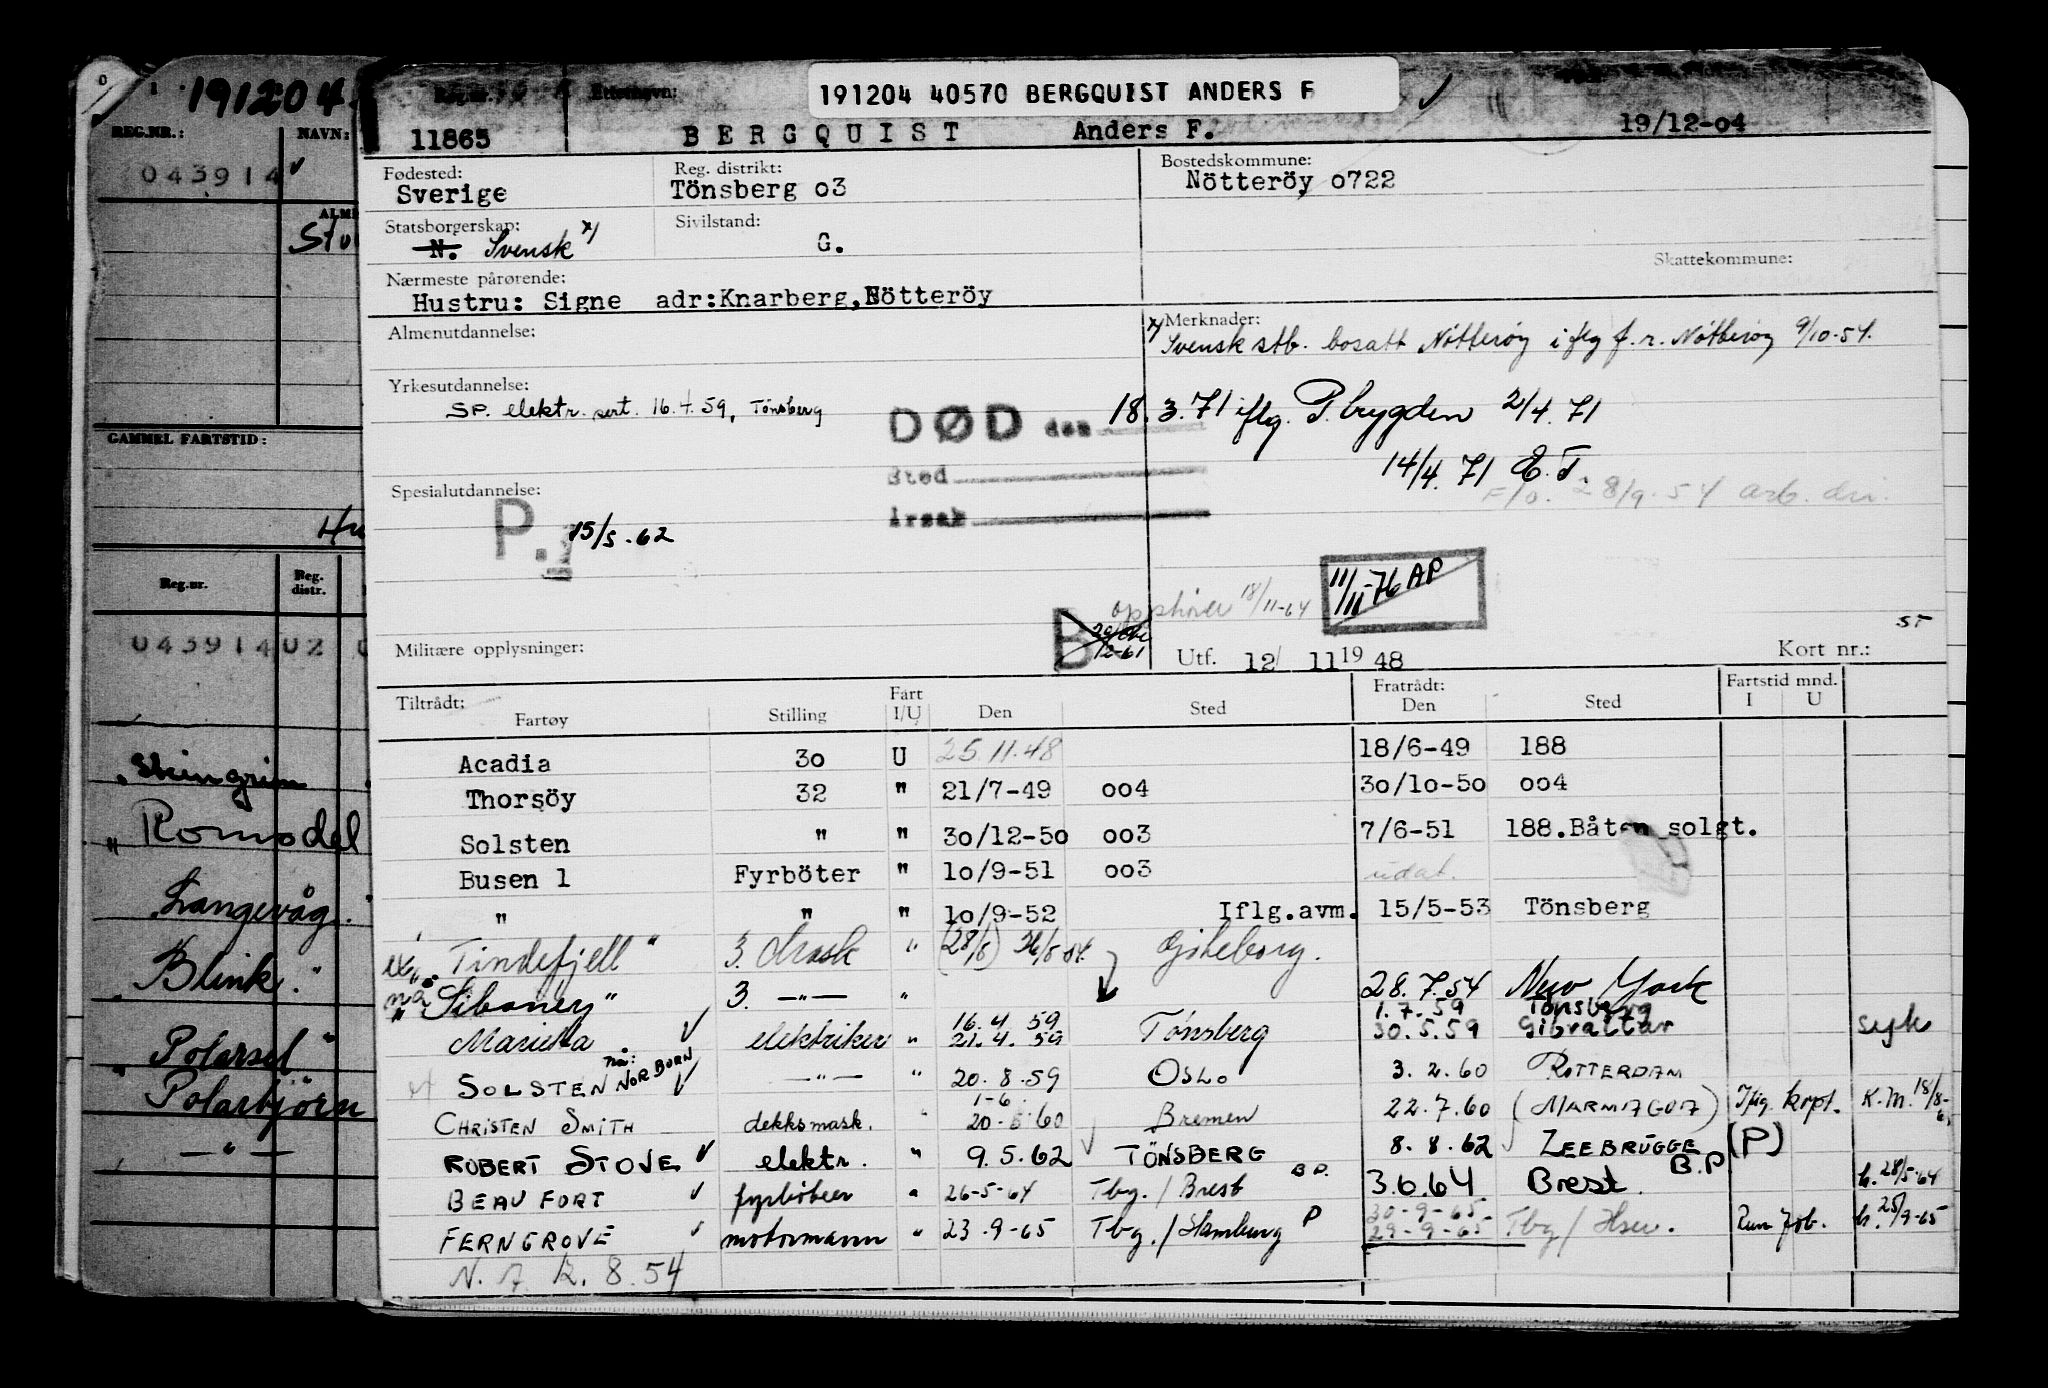 191204
REG.NR.: NAVN:
043914
GAMMEL FARTSTID:
Reg.nr. Reg. distr.
04391402
Romsdal
Langevåg
Blink
Polarsel
Polarbjörn
— " —
191204 40570 BERGQUIST ANDERS F
11865 BERGQUIST Anders F. 19/12-04
Fødested: Reg. distrikt: Bostedskommune:
Sverige Tönsberg 03 Nötteröy 0722
Statsborgerskap: Sivilstand:
N. Svensk x) G.
Skattekommune:
Nærmeste pårørende:
Hustru: Signe adr:Knarberg, Nötteröy
Almenutdannelse: Merknader:
x) Svensk stb. bosatt Nötteröy iflg f. r. Nötteröy 9/10-54.
Yrkesutdannelse:
SP. elektr. sert. 16.4.59, Tönsberg
DØD den 18.3.71 iflg. P. brygden 2/4.71
14/4.71 E.T.
Sted
Årsak
28/9.54
Spesialutdannelse:
P. 15/5.62
11/11-76 AP
opphører 18/11-64
B
Militære opplysninger: Utf. 12/ 11 19 48 Kort nr.: ST
Tiltrådt: Fart Fratrådt: Fartstid mnd.
Fartøy Stilling I/U Den Sted Den Sted I U
Acadia 30 U 25.11.48 18/6-49 188
Thorsöy 32 " 21/7-49 004 30/10-50 004
Solsten " " 30/12-50 003 7/6-51 188.Båten solgt.
Busen 1 Fyrböter " 10/9-51 003 udat.
" " " 10/9-52 Iflg.avm. 15/5-53 Tönsberg
ex. "Tindefjell" 3. mask " (28/8) Göteborg.
nå "Siboney" 3. —"— " 28.7.54 New York
1.7.59 Tönsberg
Marietta elektriker " 16.4.59 21.4.59 Tönsberg 30.5.59 Gibraltar syk
SOLSTEN nå: NORBORN —"— " 20.8.59 OSLO 3.2.60 ROTTERDAM
CHRISTEN SMITH dekksmask. " 1-6. 20-5-60 Bremen 22.7.60 (MARMAGOA) Iflg. kapt. K.M. 18/8-
ROBERT STOVE elektr. " 9.5.62 TÖNSBERG 8.8.62 ZEEBRÜGGE (P)
BEAUFORT fyrböter " 26-5-64 Tbg. / Brest B.P. 3.6.64 Brest. B.P h. 28/5-64
FERNGROVE motormann " 23.9-65 Tbg. / Hamburg P 30-9-65 29-9-65 Tbg / h. 25/9-65
N. A. 12.8.54